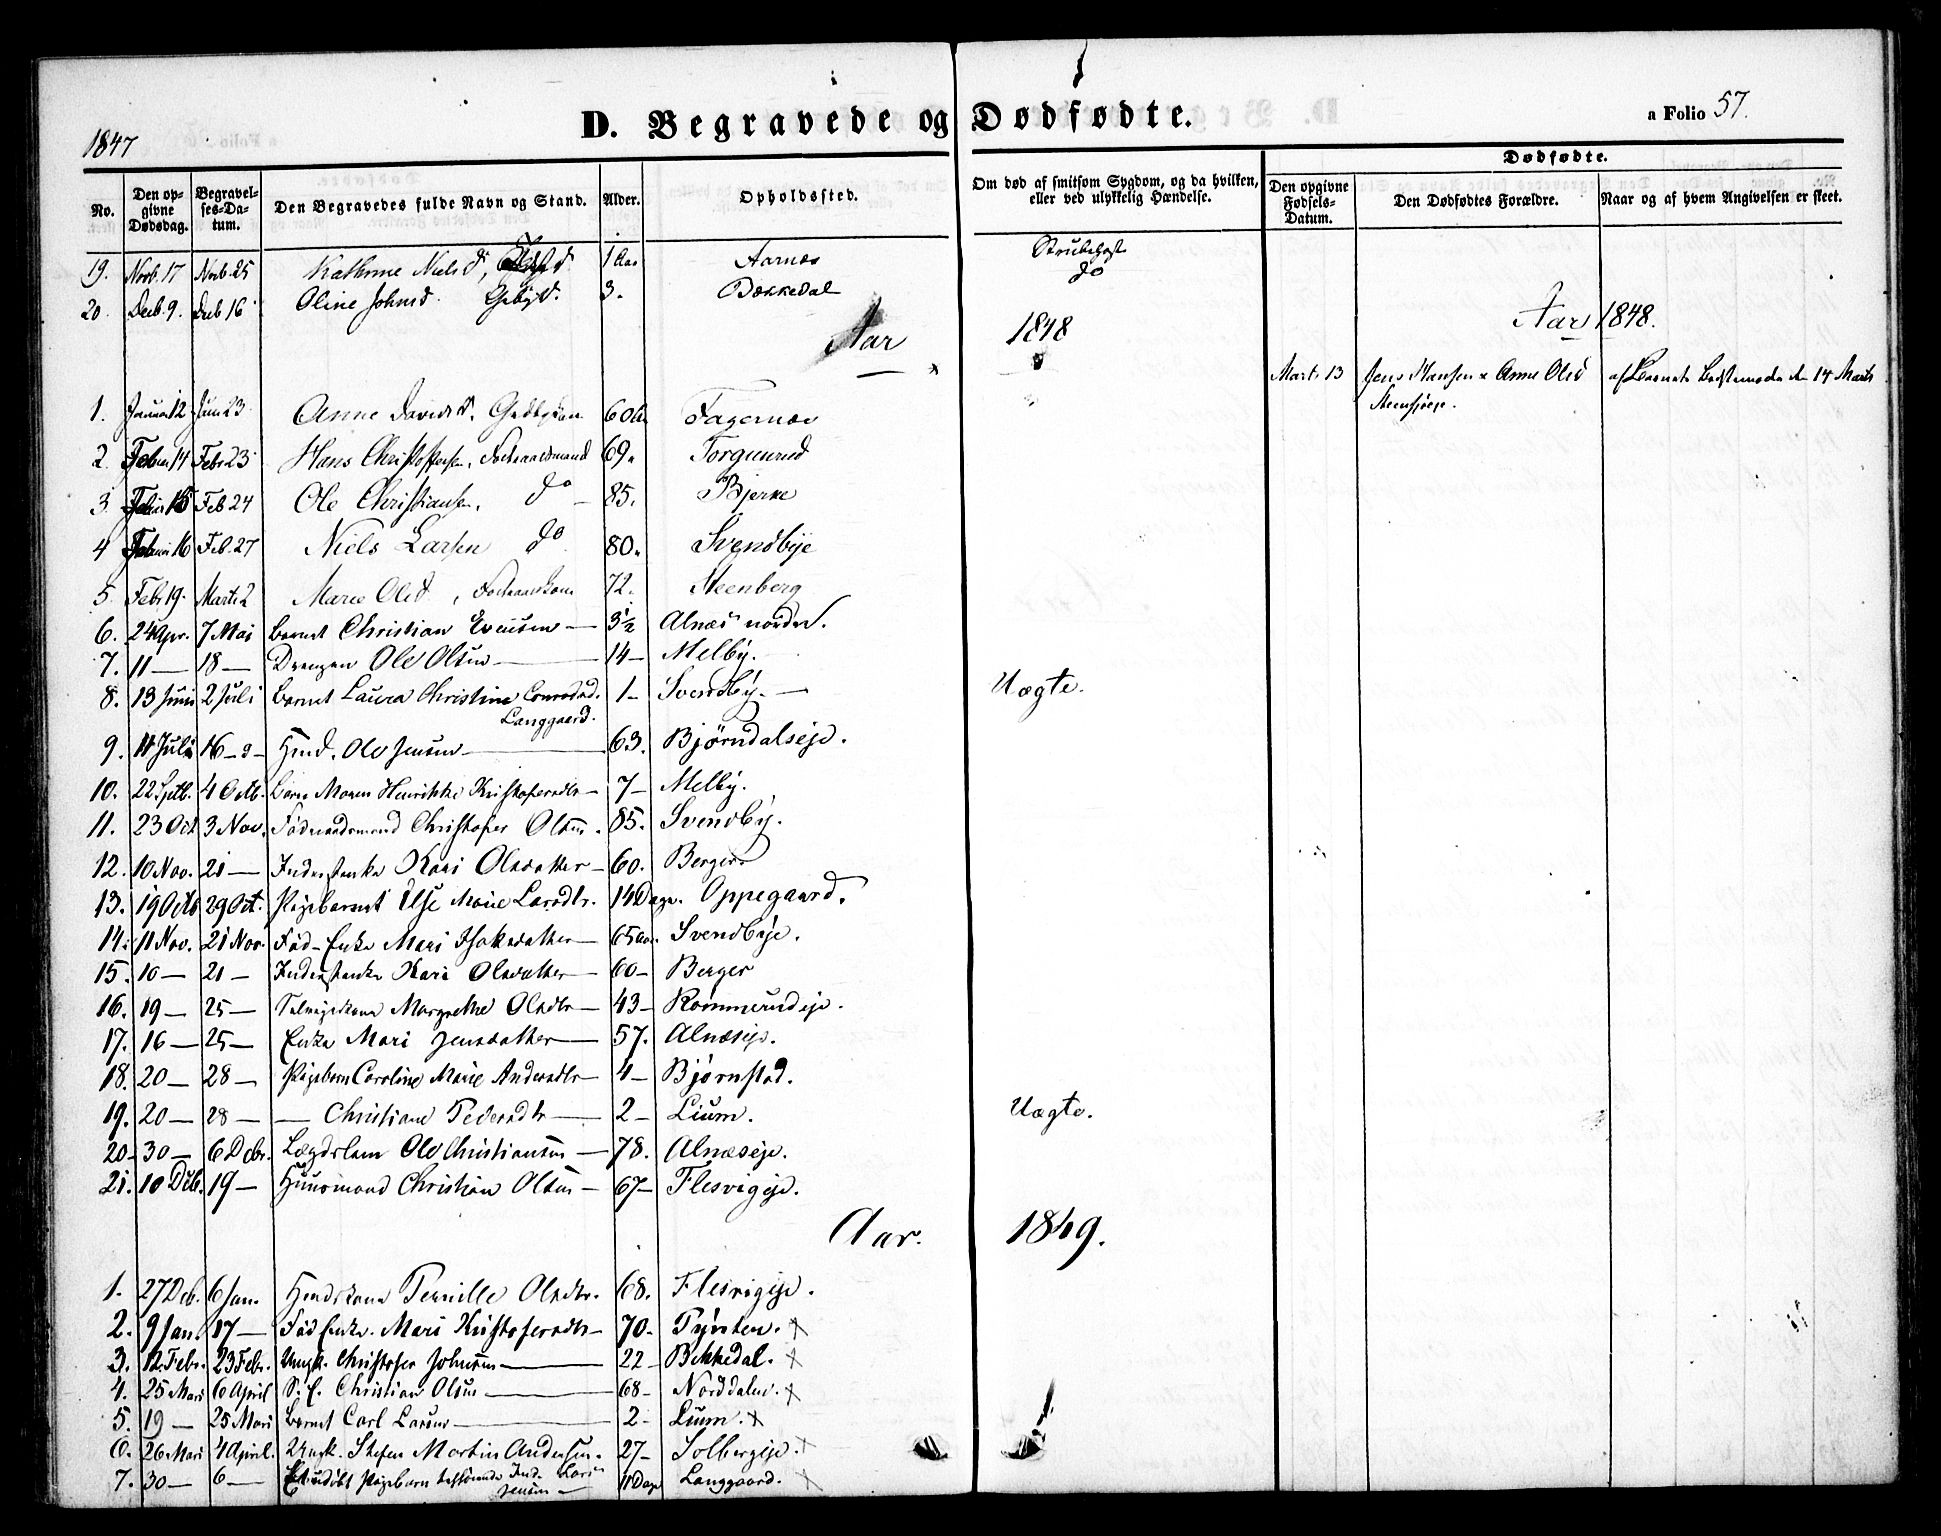 1847
D. Begravede og Dødfødte.
a Folio 57.
No. Den opgivne Dødsdag. Begravelses-Datum. Den Begravedes fulde Navn og Stand. Alder. Opholdssted. Om død af smitsom Sygdom, og da hvilken, eller ved ulykkelig Hændelse.
Dødfødte.
Den opgivne Fødsels-Datum. Den Dødfødtes Forældre. Naar og af hvem Angivelsen er skeet.
19. Novb. 17 Novb. 25 Kathrine Niels d. 1 Aar Aarnæs Strubehoste
20. Decb. 9. Decb 16 Oline Johnsd. 3. Bækkedal do
Aar 1848
Aar 1848.
Marts 13 Jens Hansen & Anne Olsd Steensjøeje. af Barnets Bedstemoder den 14 Marts
1. Januar 12 Jan 23 Anne Davidsd. 60 Aar Fagernæs
2. Februar 14 Febr 23 Hans Christophersen, Føderaadsmand 69. Torgunrud
3. Februar 15 Feb 24 Ole Christiansen, do — 85. Bjerke
4 Februar 16 Feb. 27 Niels Larsen do 80. Svendbye
5. Febr 19. Marts 2 Marie Olsd, Føderaadskone 72. Steenberg
6. 24 Apr. 7 Mai Barnet Christian Evensen — 3½ Alnæs nordre.
7. 11 — 18 — Drengen Ole Olsen — 14 — Melby.
8. 13 Juni 2 Juli Barnet Laura Christine Conradsd. Langgaard. 1 — Svendby. — Uægte.
9. 11 Juli 16 — Huusmd. Ole Jensen — 63. Bjørndalseje.
10. 22 Septb. 4 Octb. Barn Maren Henrikke Kristofersdtr — 7 — Melby.
11. 23 Oct 3 Nov. Føderaadsmand Christofer Olsen. 85. Svendby.
12. 10 Nov. 21 — Inderstenke Kari Olsdatter — 60. Berger
13. 19 Octb 29 Oct. Pigebarnet Else Marie Larsdtr. 14 Dage. Oppegaard.
14. 11 Nov. 21 Nov. Fød-Enke Mari Isaksdatter — 65 Aar. Svendbye.
15. 10 — 21 — Inderstenke Kari Olsdatter — 60 — Berger
16. 19 — 25 — Selvejerkone Margrethe Olsdtr — 43 — Rommerudeje.
17. 16 — 25 — Enke Mari Jensdatter — 57. Alnæseje.
18. 20 — 28 — Pigebarn Caroline Marie Andersdtr — 4 — Bjørnstad.
19. 20 — 28 — — Christiane Pedersdtr — 2 — Lium. Uægte.
20. 30 — 6 Debr. Lægdslem Ole Christiansen — 78. Alnæseje.
21. 10 Deb. 19 — Huusmand Christian Olsen — 67 — Flesvigeje.
Aar. 1849.
1. 27 Deb. 6 Jan. Husmandskone Pernille Olsdtr. 68. Flesvigeje.
2. 9 Jan. 17 — Fød Enke. Mari Kristofersdtr — 70. Tynsten.
3. 12 Febr. 23 Febr. Ungk. Christofer Johnsen — 22 — Bekkedal.
4. 25 Mars 6 April S. E. Christian Olsen — 68 — Norddalen.
5. 19 — 25 Mars Barnet Carl Larsen — 2 — Lium.
6. 26 Mars 4 April. Ungk. Steffen Martin Andersen. 27 — Solbergeje.
7. 30 — 6 — Pigebarn Ind. Lars Jensen — 11 Dage Langgaard.